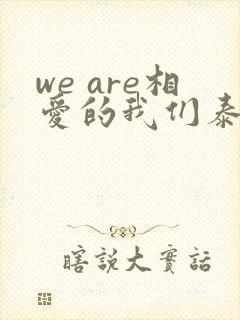 we are相
爱的我们泰
瞎說大實話